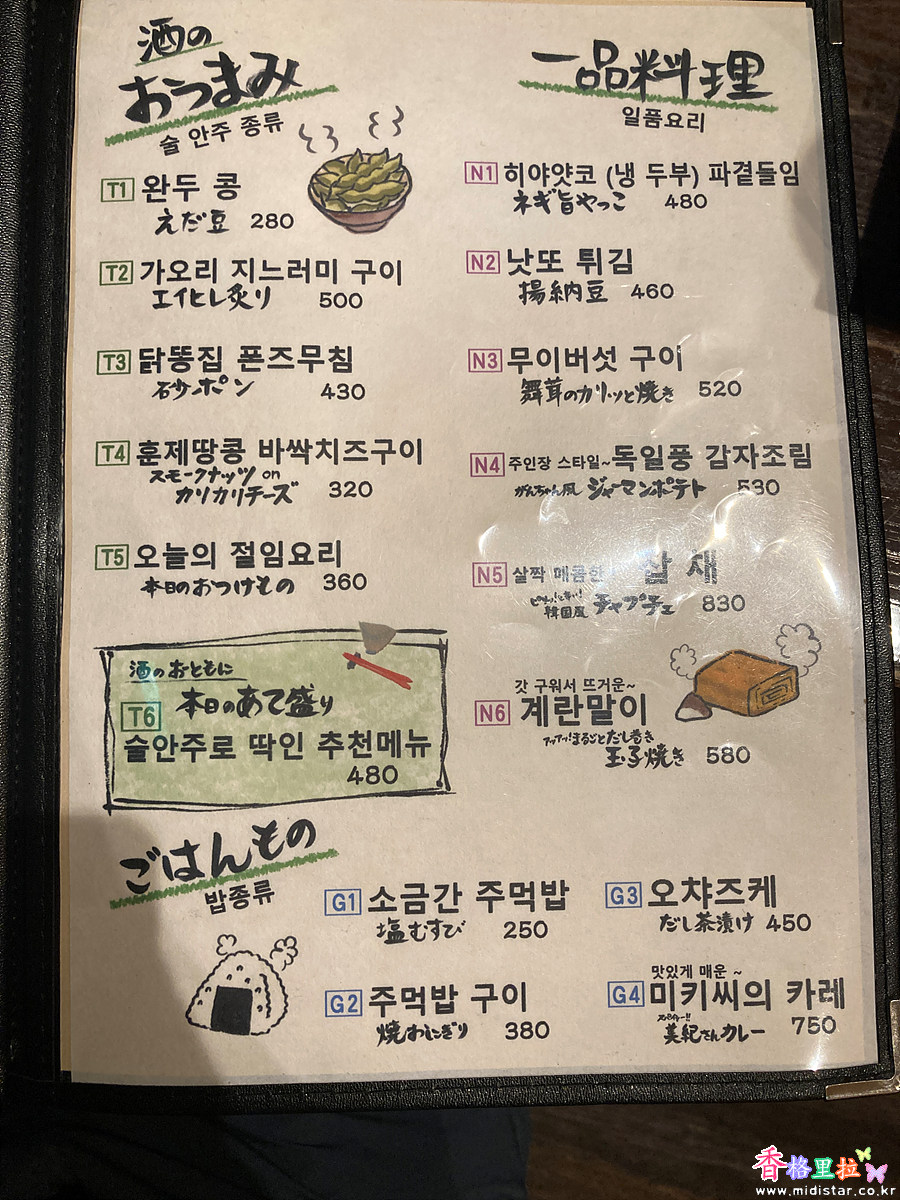 酒の
おつまみ
술 안주 종류
T1 완두 콩
えだ豆 280
T2 가오리 지느러미 구이
エイヒレ炙り 500
T3 닭똥집 폰즈무침
砂ポン 430
T4 훈제땅콩 바싹치즈구이
スモークナッツon
カリカリチーズ 320
T5 오늘의 절임요리
本日のおつけもの 360
酒のおともに
T6 本日のあて盛り
술안주로 딱인 추천메뉴
480
一品料理
일품요리
N1 히야얏코 (냉 두부) 파곁들임
ネギ旨やっこ 480
N2 낫또 튀김
揚納豆 460
N3 무이버섯 구이
舞茸のカリッと焼き 520
N4 주인장 스타일~독일풍 감자조림
がんちゃん風 ジャーマンポテト 530
N5 살짝 매콤한 잡 채
韓国風 チャプチェ 830
갓 구워서 뜨거운~
N6 계란말이
アツアツ!まるごとだし巻き
玉子焼き 580
ごはんもの
밥종류
G1 소금간 주먹밥
塩むすび 250
G2 주먹밥 구이
焼おにぎり 380
G3 오챠즈케
だし茶漬け 450
맛있게 매운 ~
G4 미키씨의 카레
美紀さんカレー 750
香格里拉
www.midistar.co.kr